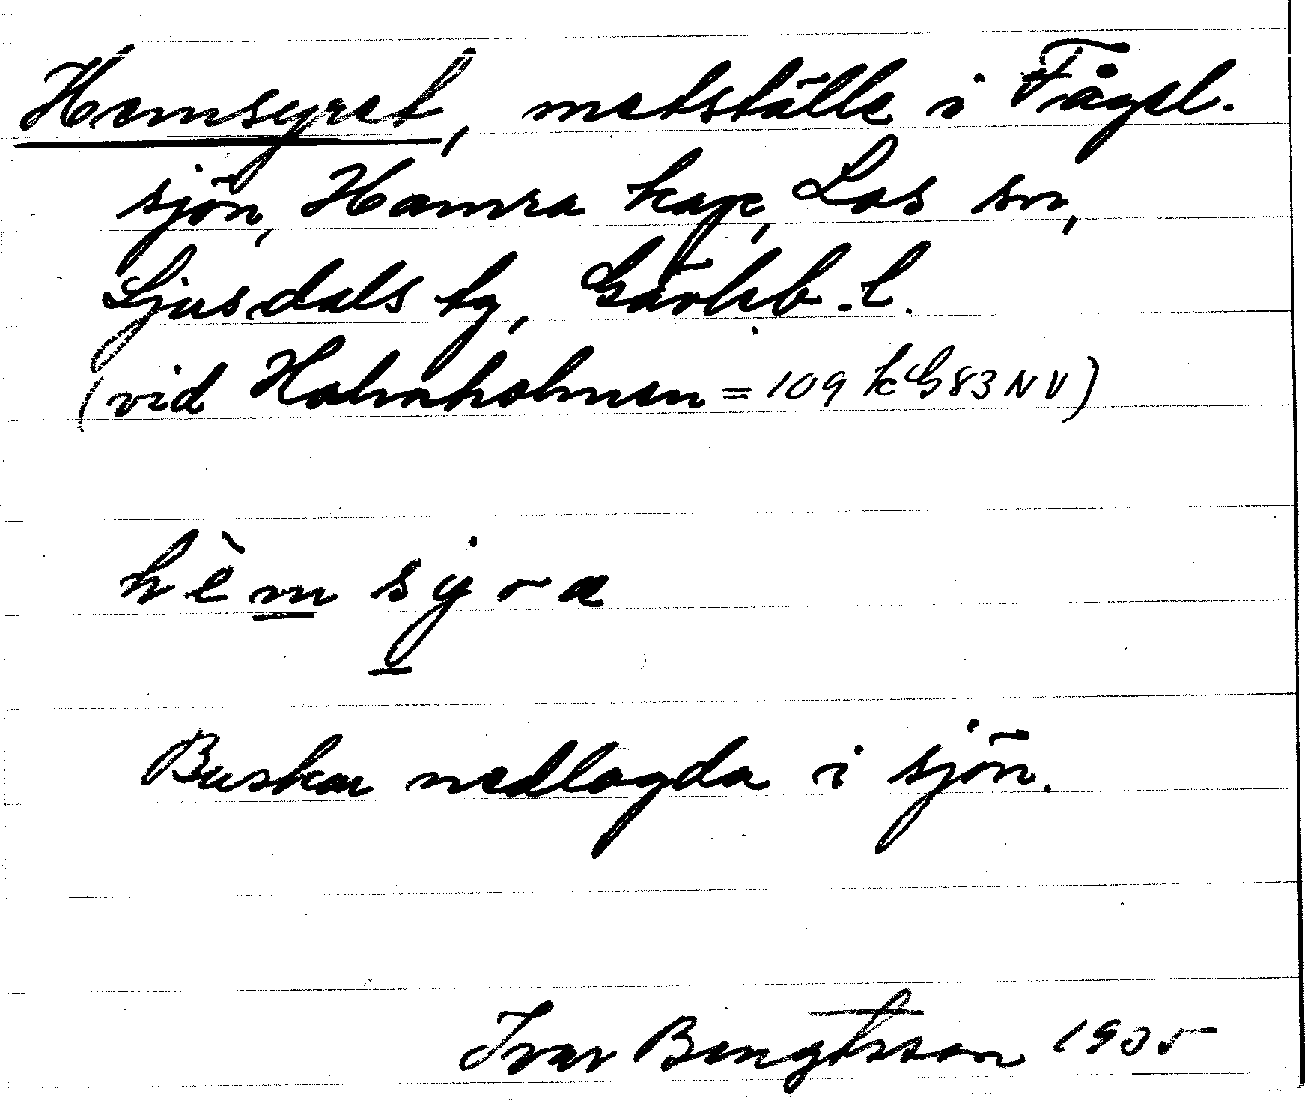 Hemsyret, metställe i Fågel-
sjön, Hamra kap, Los sn,
Ljusdals tg, Gävleb. l.
(vid Halmholmen = 109 kG83NV)
hèmsyra
Buskar nedlagda i sjön.
Ivar Bengtsson 1935